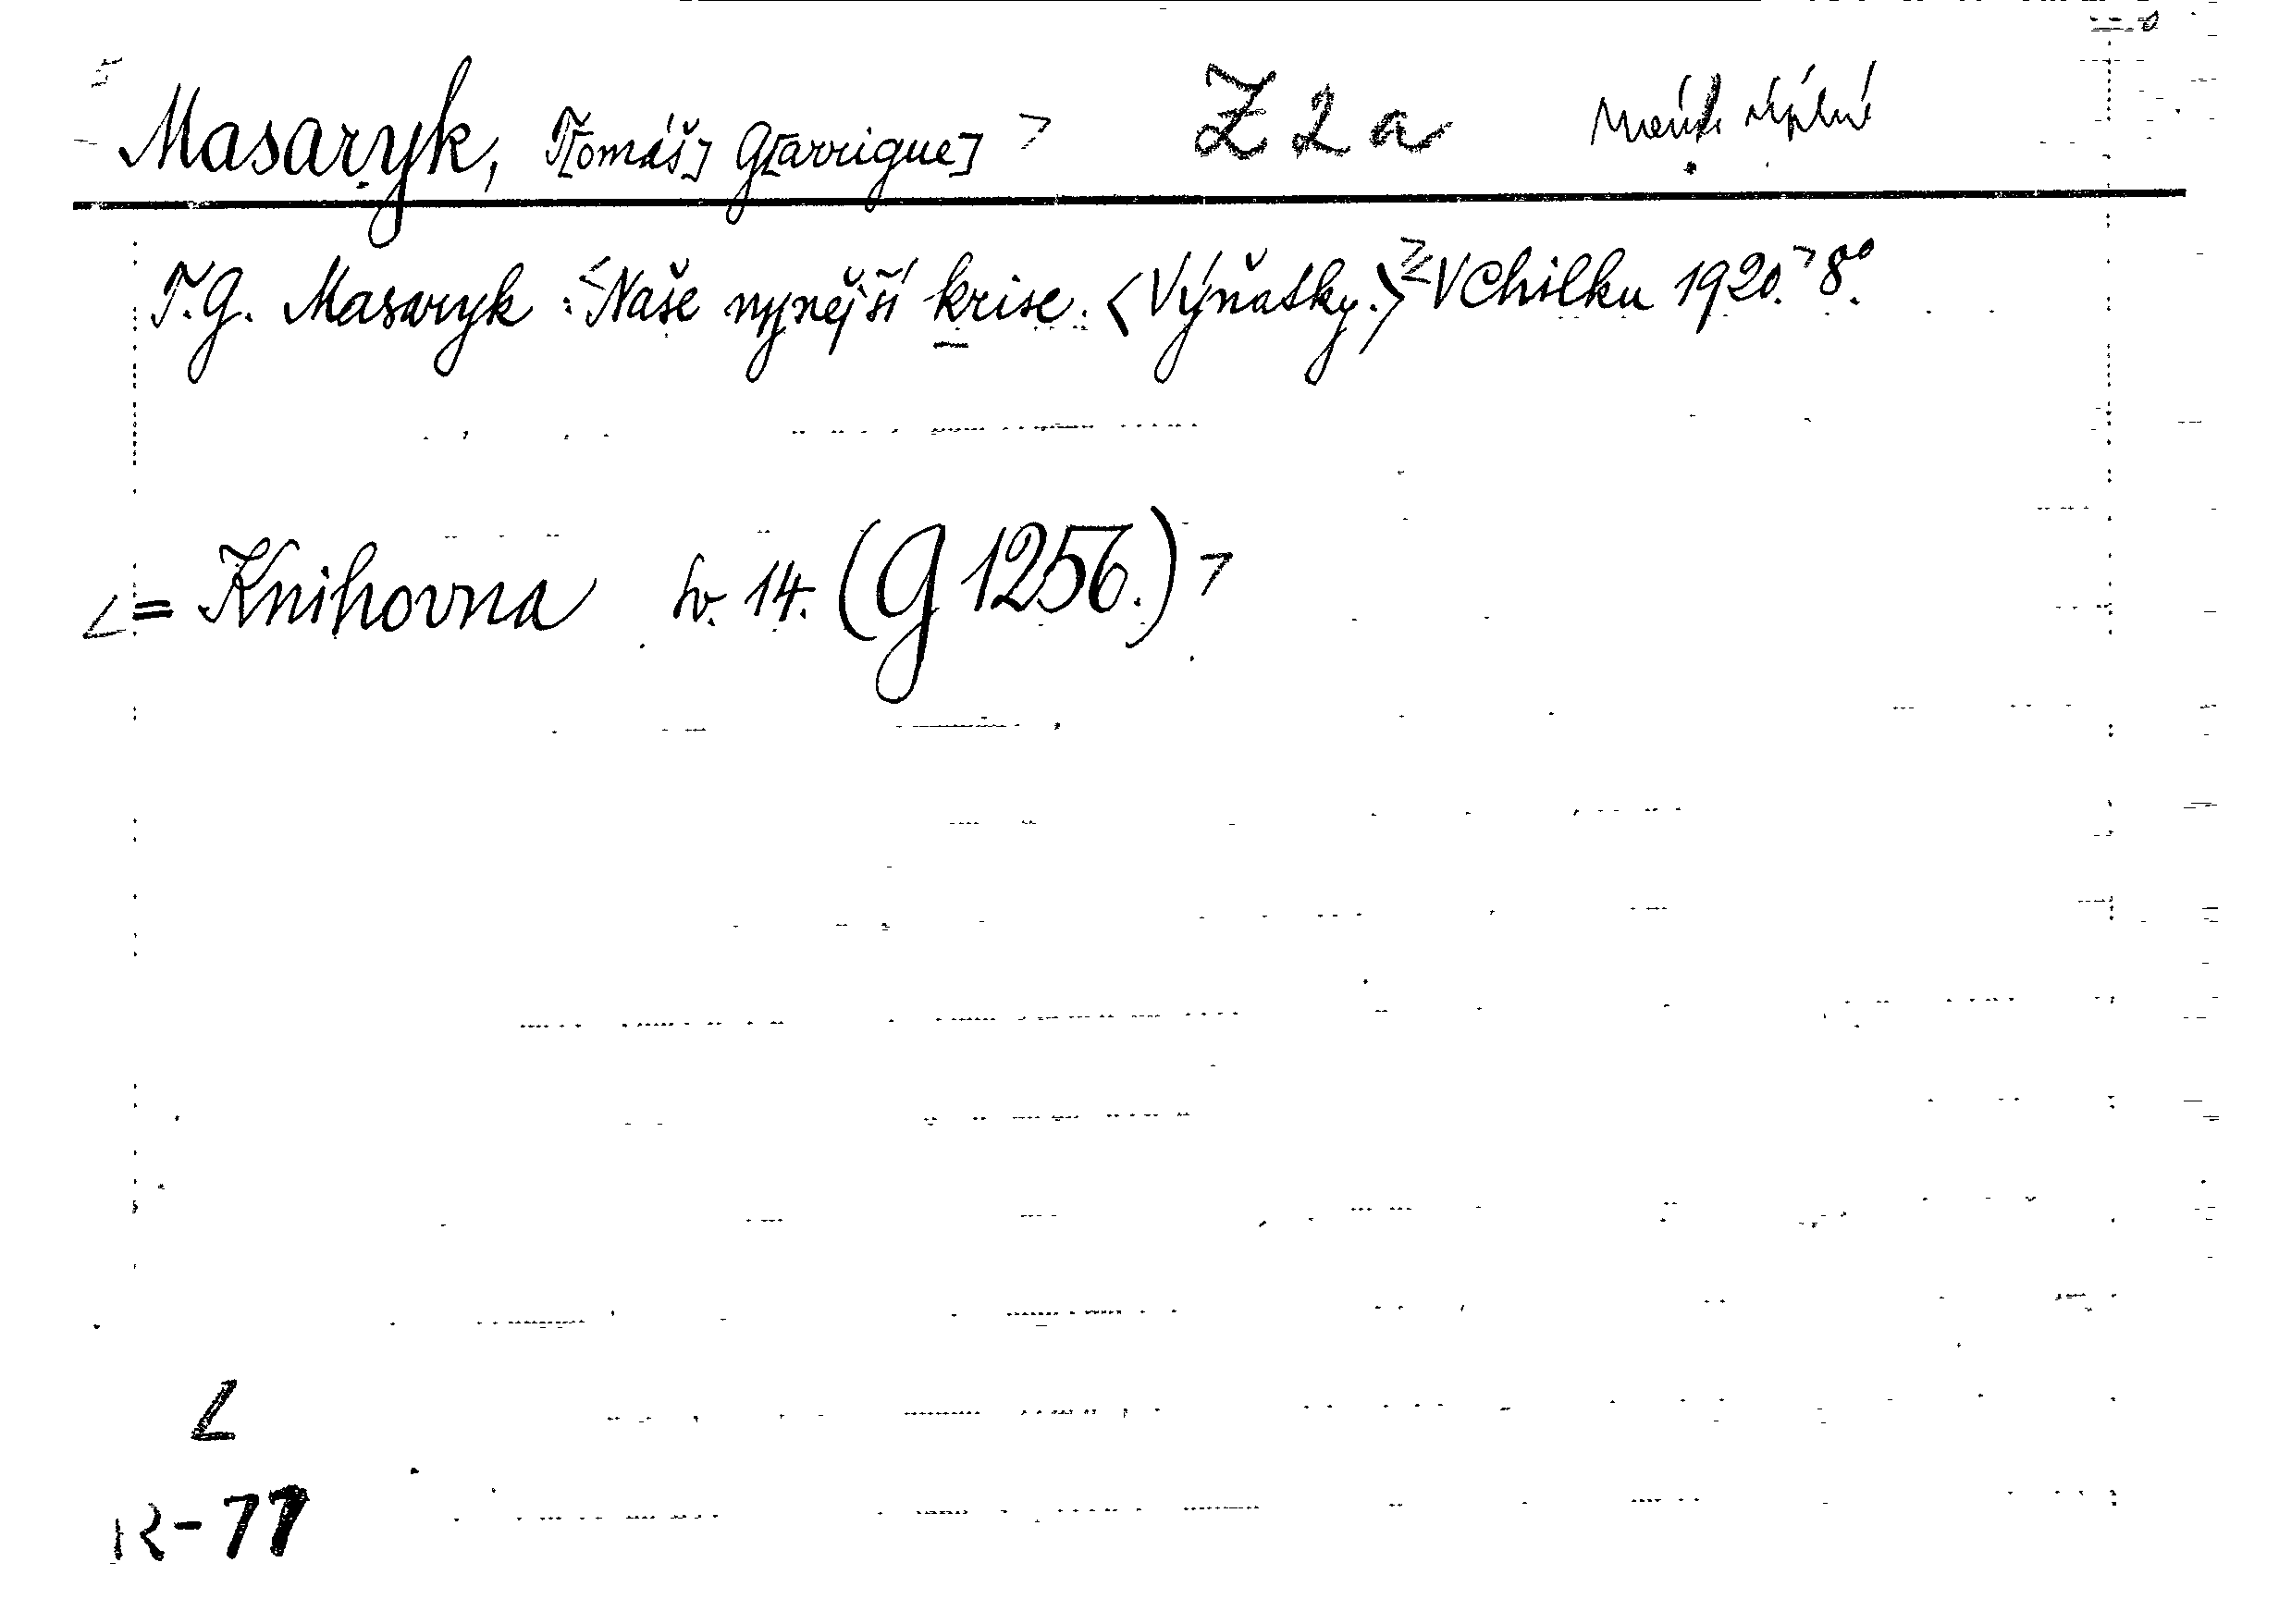 Masaryk, T[omáš] G[arrigue] Z 2 a
T. G. Masaryk: Naše nynější krise. (Výňatky.) V Chilku 1920. 8°.
= Knihovna sv. 14. (G 1256.)
L
R-77